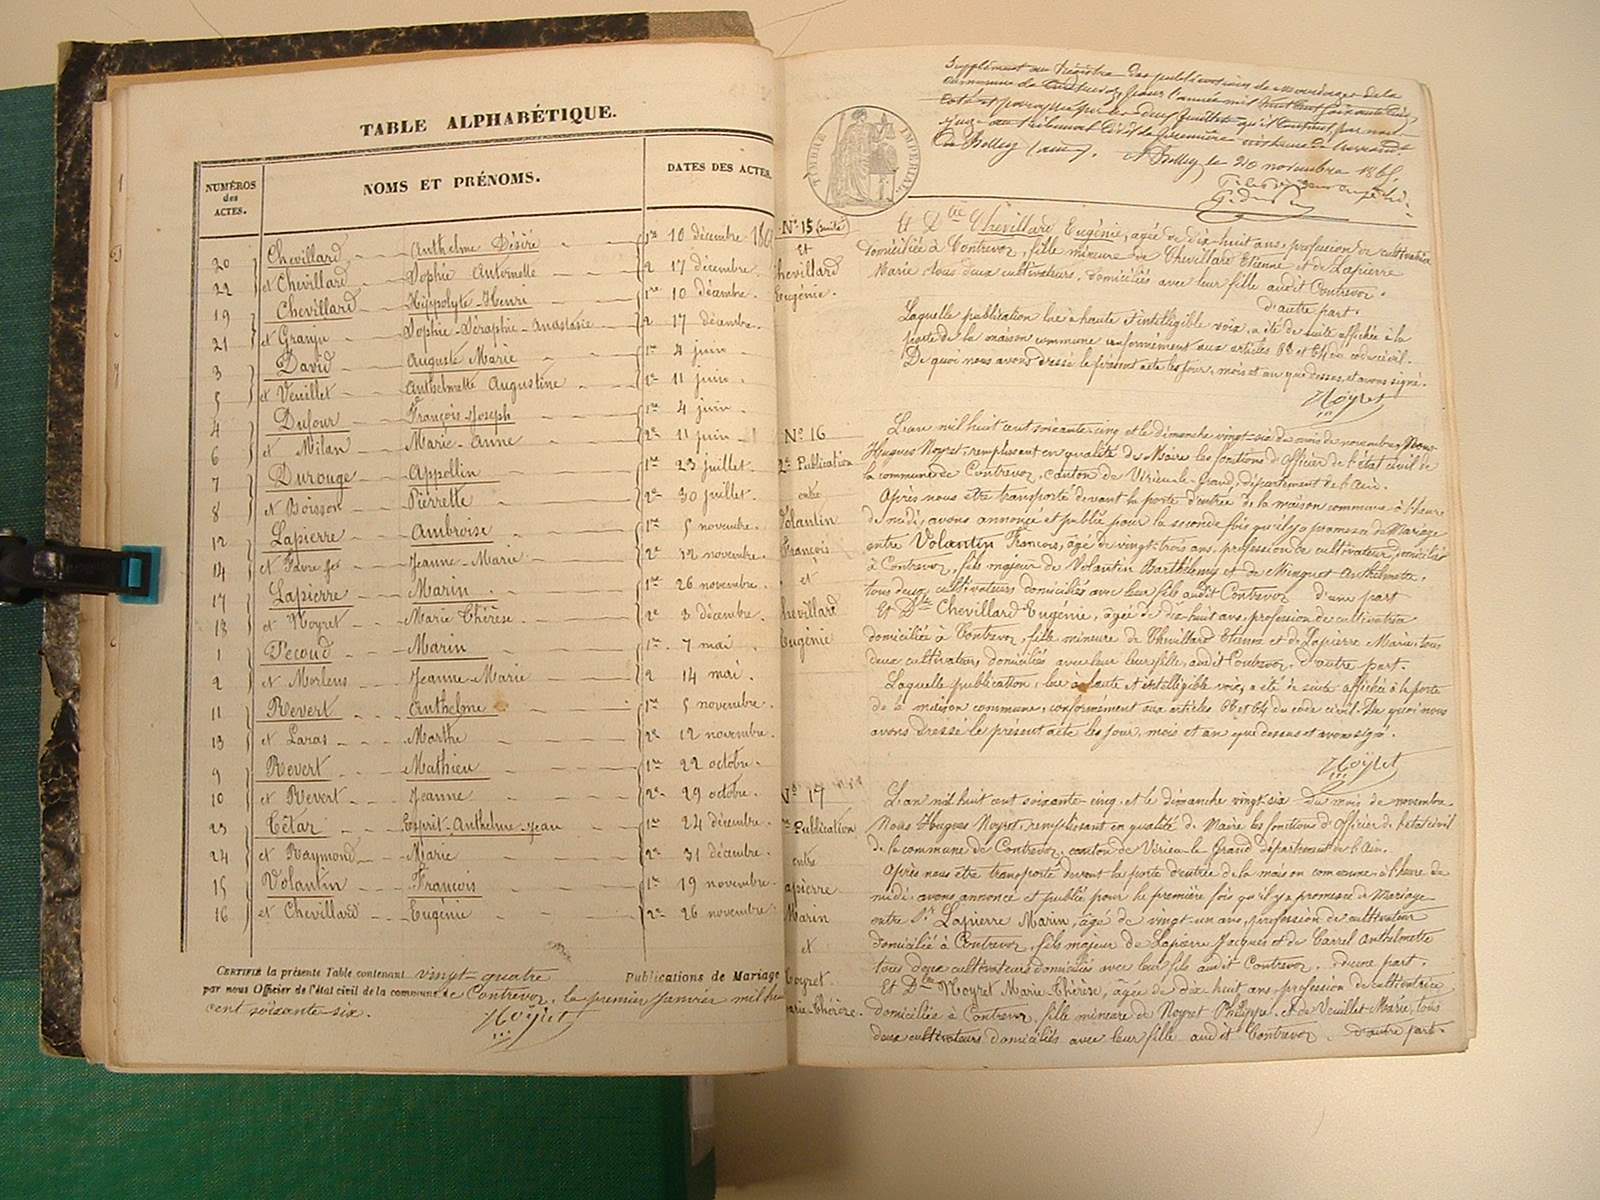 TABLE ALPHABÉTIQUE.
NUMÉROS des ACTES.
NOMS ET PRÉNOMS.
DATES DES ACTES.
20 Chevillard Anthelme Désiré 1re 10 décembre 186
22 et Chevillard Sophie Antoinette 2 17 décembre
19 Chevillard Hippolyte-Henri 1re 10 décembre
21 et Granju Sophie-Séraphie-Anastasie 2 17 décembre
3 David Auguste Marie 1re 4 juin
5 et Veuillet Anthelmette Augustine 1re 11 juin
4 Dufour François-Joseph 1re 4 juin
6 et Milan Marie-Anne 2e 11 juin
7 Durouge Appollin 1re 23 juillet
8 et Boisson Pierrette 2e 30 juillet
12 Lapierre Ambroise 1re 5 novembre
14 et Favre Jeanne-Marie 2e 12 novembre
17 Lapierre Marin 1re 26 novembre
18 et Noyret Marie Thérèse 2e 3 décembre
1 Pecoud Marin 1re 7 mai
2 et Merlens Jeanne-Marie 2 14 mai
11 Revert Anthelme 1re 5 novembre
13 et Laras Marthe 2e 12 novembre
9 Revert Mathieu 1re 22 octobre
10 et Revert Jeanne 2e 29 octobre
23 Tétaz Esprit-Anthelme-Jean 1re 24 décembre
24 et Raymond Marie 2e 31 décembre
15 Volantin François 1re 19 novembre
16 et Chevillard Eugénie 2e 26 novembre
CERTIFIÉ la présente Table contenant vingt-quatre Publications de Mariage
par nous Officier de l'état civil de la commune de Contrevoz, le premier janvier mil hui
cent soixante-six.
Noyret
Supplément au Registre des publications de mariage de la
commune de Contrevoz pour l'année mil huit cent soixante cinq
de Belley (ain). A Belley, le 20 novembre 1865
TIMBRE IMPÉRIAL
No 15 (suite)
Et
hevillard
Eugénie.
Et Dlle Chevillard Eugénie, agée de dix-huit ans, profession de cultivatrice
domiciliée à Contrevoz, fille mineure de Chevillard Etienne et de Lapierre
Marie tous deux cultivateurs, domiciliés avec leur fille audit Contrevoz.
d'autre part.
Laquelle publication lue à haute et intelligible voix, a été de suite affichée à la
porte de la maison commune conformément aux articles 63 et 64 du code civil.
De quoi nous avons dressé le présent acte les jour, mois et an que dessus, et avons signé.
Noyret
No 16
2e Publication
entre
Volantin
François
et
hevillard
Eugénie
L'an mil huit cent soixante-cinq et le dimanche vingt-six du mois de novembre, Nous
Hugues Noyret, remplissant en qualité de Maire les fonctions d'Officier de l'état civil de
la commune de Contrevoz, canton de Virieu-le-Grand, département de l'Ain.
Après nous être transporté devant la porte d'entrée de la maison commune à l'heure
de midi, avons annoncé et publié pour la seconde fois qu'il y a promesse de Mariage
entre Volantin François, âgé de vingt-trois ans, profession de cultivateur, domicilié
à Contrevoz, fils majeur de Volantin Barthélemy et de Minguet Anthelmette,
tous deux cultivateurs domiciliés avec leur fils audit Contrevoz d'une part
Et Dlle Chevillard Eugénie, âgée de dix-huit ans, profession de cultivatrice
domiciliée à Contrevoz, fille mineure de Chevillard Etienne et de Lapierre Marie, tous
deux cultivateurs domiciliés avec leur leur fille, audit Contrevoz, d'autre part.
Laquelle publication, lue à haute et intelligible voix, a été de suite affichée à la porte
de la maison commune, conformément aux articles 63 et 64 du code civil. De quoi nous
avons dressé le présent acte les jour, mois et an que dessus et avons signé.
Noyret
No 17
re Publication
entre
apierre
Marin
et
Noyret
arie-Thérèze.
L'an mil huit cent soixante-cinq, et le dimanche vingt-six du mois de novembre
Nous Hugues Noyret, remplissant en qualité de Maire les fonctions d'Officier de l'état civil
de la commune de Contrevoz, canton de Virieu-le-Grand département de l'Ain.
Après nous être transporté devant la porte d'entrée de la maison commune, à l'heure de
midi, avons annoncé et publié pour la première fois qu'il y a promesse de Mariage
entre Sr Lapierre Marin, âgé de vingt-un ans, profession de cultivateur
domicilié à Contrevoz, fils majeur de Lapierre Jacques et de Carrel Anthelmette
tous deux cultivateurs domiciliés avec leur fils audit Contrevoz. d'une part.
Et Dlle Noyret Marie-Thérèse, âgée de dix huit ans, profession de cultivatrice
domiciliée à Contrevoz, fille mineure de Noyret Philippe et de Veuillet-Marie, tous
deux cultivateurs domiciliés avec leur fille audit Contrevoz. d'autre part.